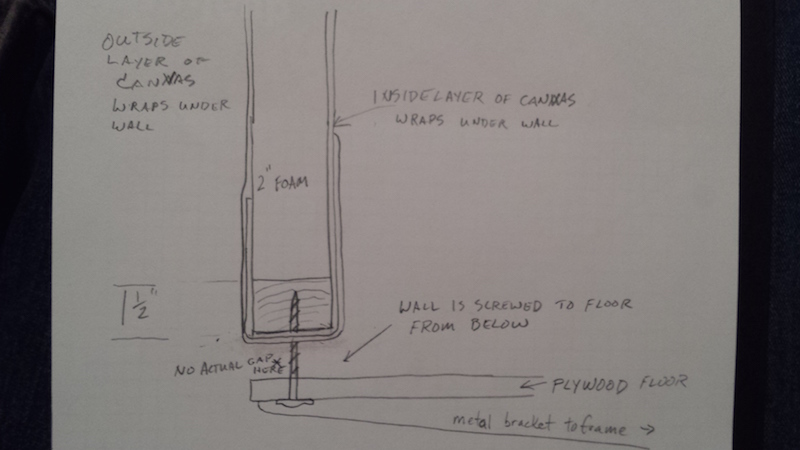 OUTSIDE
LAYER OF
CANVAS
WRAPS UNDER
WALL
INSIDE LAYER OF CANVAS
WRAPS UNDER WALL
2" FOAM
1 1/2"
WALL IS SCREWED TO FLOOR
FROM BELOW
NO ACTUAL GAP
HERE
PLYWOOD FLOOR
metal bracket to frame